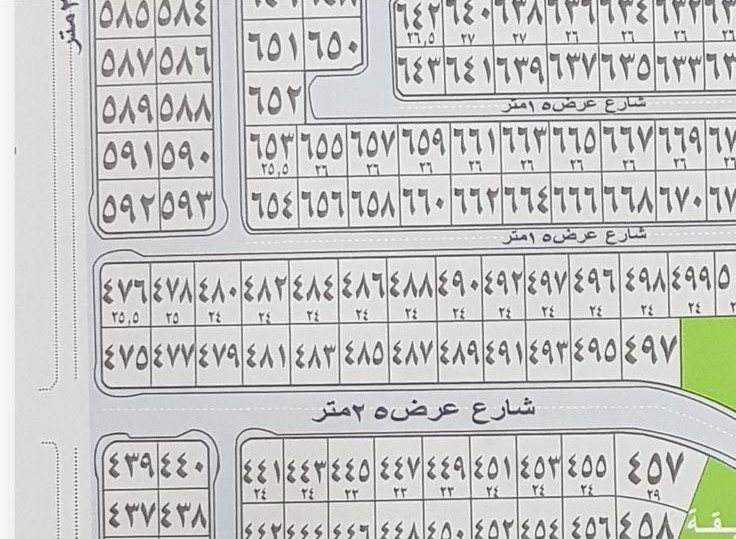 ٥٨٥ ٥٨٤
٦٤٢ ٦٤٠ ٦٣٨ ٦٣٦ ٦٣٤ ٦٣٢
٢٦,٥ ٢٧ ٢٧ ٢٦ ٢٦ ٢٦ ٢٦
متر
٦٥١ ٦٥٠
٥٨٧ ٥٨٦
٦٤٣ ٦٤١ ٦٣٩ ٦٣٧ ٦٣٥ ٦٣٣
٥٨٩ ٥٨٨
٦٥٢
شارع عرض ١٥متر
٥٩١ ٥٩٠
٦٥٣ ٦٥٥ ٦٥٧ ٦٥٩ ٦٦١ ٦٦٣ ٦٦٥ ٦٦٧ ٦٦٩
٢٥,٥ ٢٦ ٢٦ ٢٦ ٢٦ ٢٦ ٢٦ ٢٦ ٢٦ ٢٦
٥٩٢ ٥٩٣
٦٥٤ ٦٥٦ ٦٥٨ ٦٦٠ ٦٦٢ ٦٦٤ ٦٦٦ ٦٦٨ ٦٧٠
شارع عرض ١٥متر
٤٧٦ ٤٧٨ ٤٨٠ ٤٨٢ ٤٨٤ ٤٨٦ ٤٨٨ ٤٩٠ ٤٩٢ ٤٩٧ ٤٩٦ ٤٩٨ ٤٩٩ ٥
٢٥,٥ ٢٥ ٢٤ ٢٤ ٢٤ ٢٤ ٢٤ ٢٤ ٢٤ ٢٤ ٢٤ ٢٤ ٢٤
٤٧٥ ٤٧٧ ٤٧٩ ٤٨١ ٤٨٣ ٤٨٥ ٤٨٧ ٤٨٩ ٤٩١ ٤٩٣ ٤٩٥ ٤٩٧
شارع عرض ٢٥متر
٤٣٩ ٤٤٠
٤٤١ ٤٤٣ ٤٤٥ ٤٤٧ ٤٤٩ ٤٥١ ٤٥٣ ٤٥٥ ٤٥٧
٢٤ ٢٤ ٢٣ ٢٣ ٢٣ ٢٤ ٢٤ ٢٤ ٢٩
٤٣٧ ٤٣٨
٤٤٢ ٤٤٤ ٤٤٦ ٤٤٨ ٤٥٠ ٤٥٢ ٤٥٤ ٤٥٦ ٤٥٨